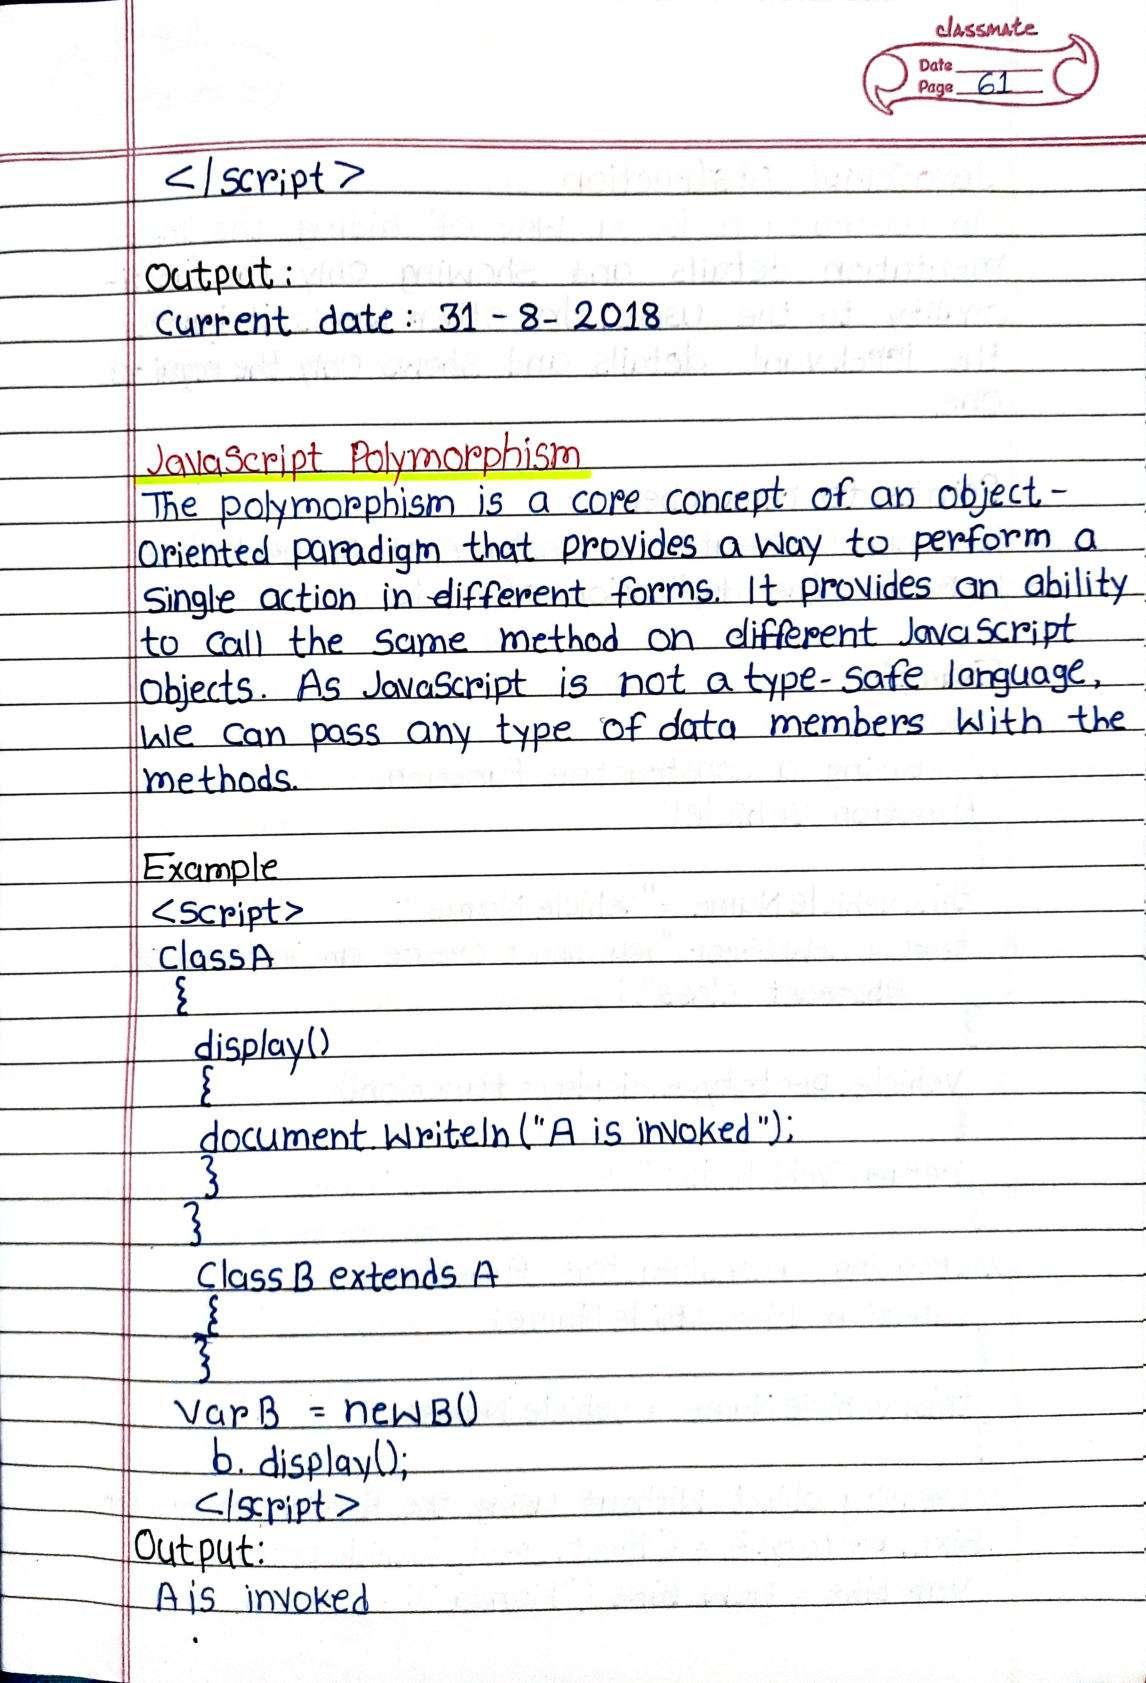 classmate
Date
Page 61
</script>
Output:
Current date: 31 - 8 - 2018
JavaScript Polymorphism
The polymorphism is a core concept of an object-
Oriented paradigm that provides a way to perform a
Single action in different forms. It provides an ability
to call the same method on different JavaScript
Objects. As JavaScript is not a type-safe language,
We can pass any type of data members With the
methods.
Example
<script>
Class A
{
display()
{
document.Writeln("A is invoked");
}
}
Class B extends A
{
}
Var B = new B()
b. display();
</script>
Output:
A is invoked